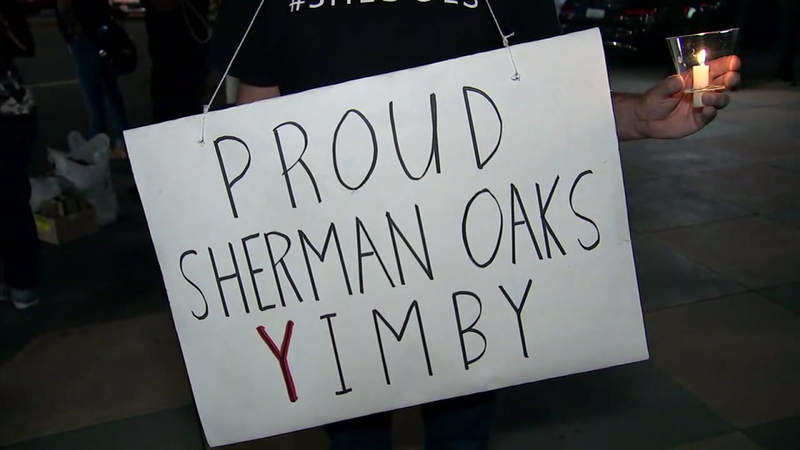 PROUD
SHERMAN OAKS
YIMBY